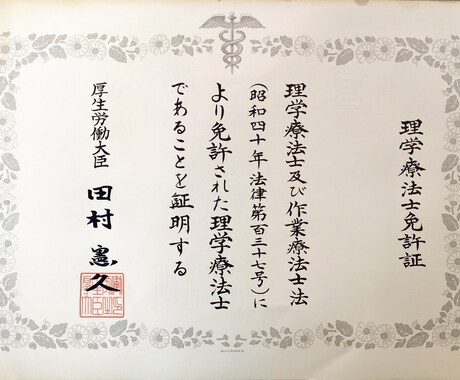 理学療法士免許証
理学療法士及び作業療法士法
(昭和四十年法律第百三十七号)に
より免許された理学療法士
であることを証明する
厚生労働大臣 田村憲久